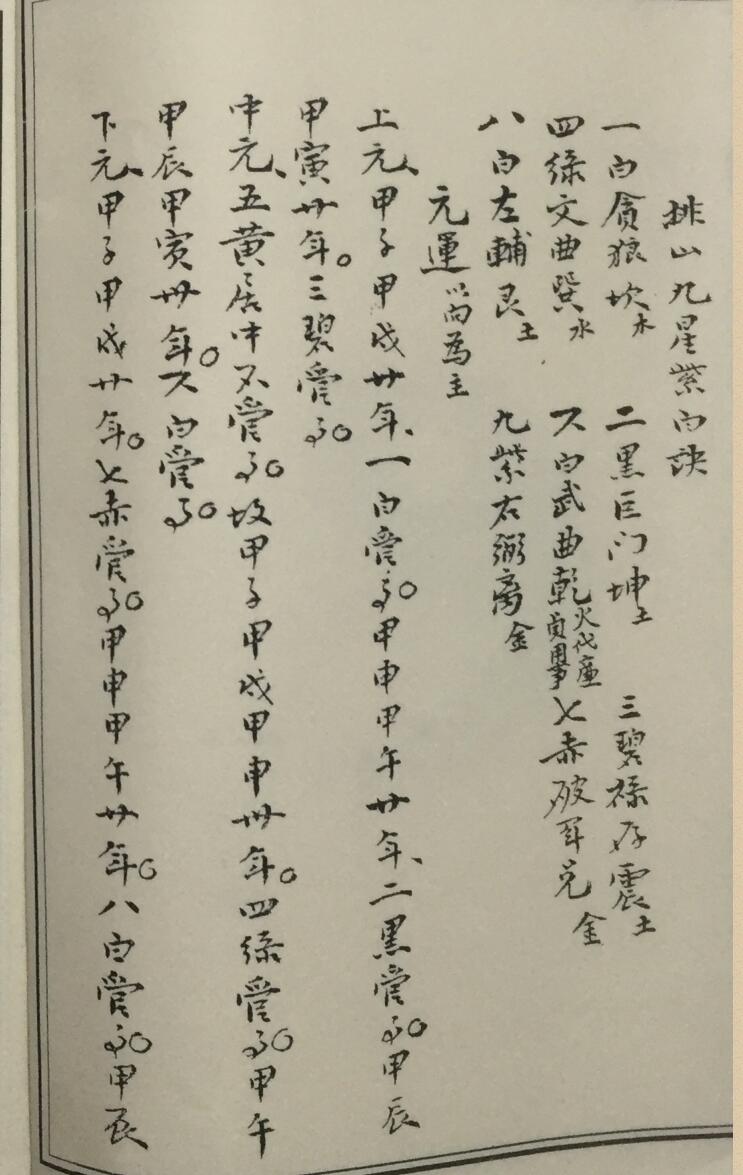 排山九星紫白訣
一白貪狼坎木 二黑巨门坤土 三碧祿存震土
四綠文曲巽水 六白武曲乾火代廉貞用事 七赤破军兑金
八白左輔艮土 九紫右弼离金
元運以向為主
上元、甲子甲戌廿年、一白管事。甲申甲午廿年、二黑管事。甲辰
甲寅廿年。三碧管事。
中元、五黄居中不管事。故甲子甲戌甲申卅年。四綠管事。甲午
甲辰甲寅卅年。六白管事。
下元、甲子甲戌廿年。七赤管事。甲申甲午廿年。八白管事。甲辰